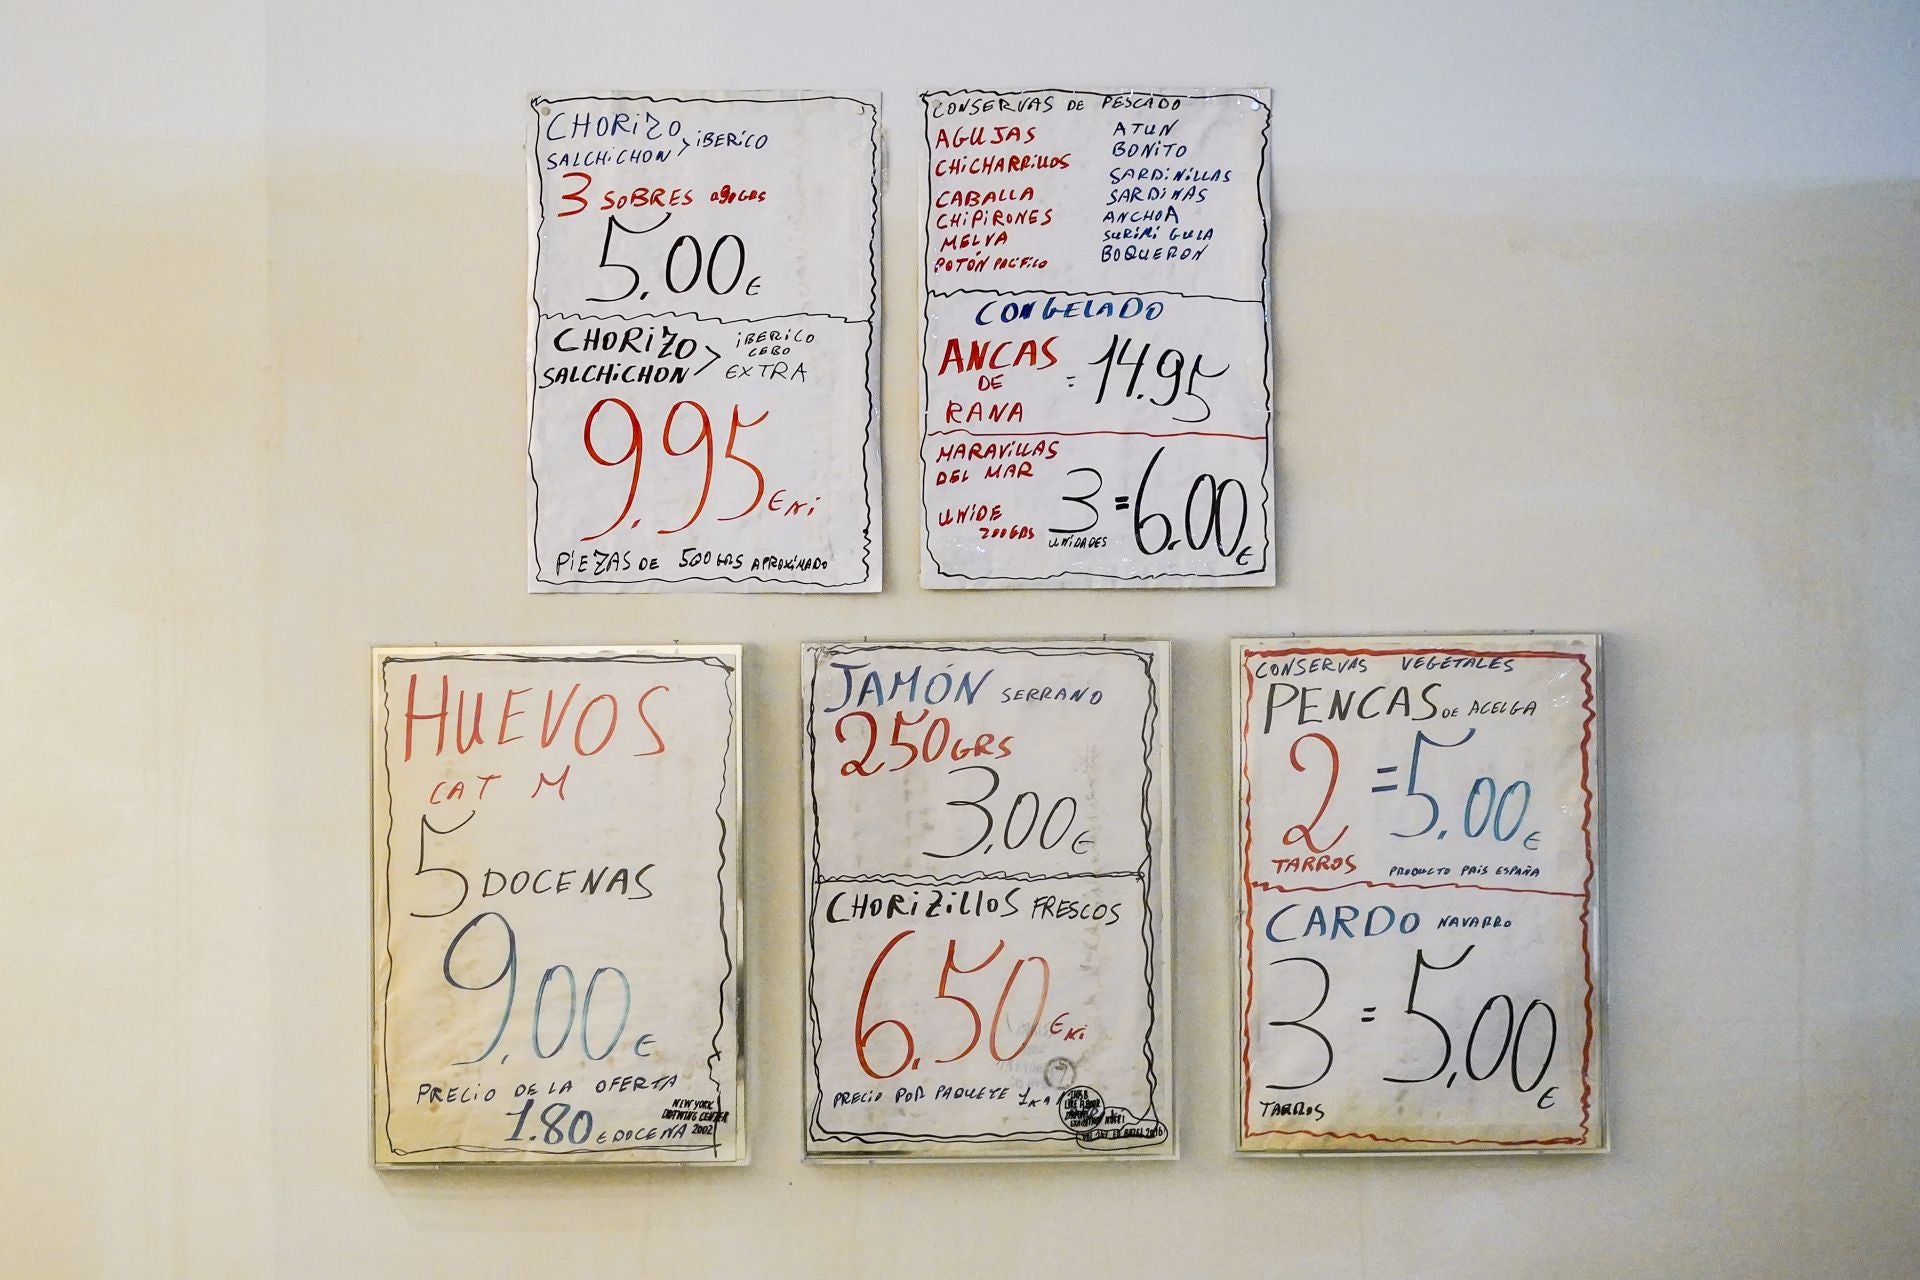 CHORIZO
SALCHICHON > IBERICO
3 SOBRES
5,00 €
CHORIZO
SALCHICHON > IBERICO
CEBO
EXTRA
9.95 € Ki
PIEZAS DE 500 GRS APROXIMADO
CONSERVAS DE PESCADO
AGUJAS
CHICHARRILLOS
CABALLA
CHIPIRONES
MELVA
POTÓN PACIFICO
ATUN
BONITO
SARDINILLAS
SARDINAS
ANCHOA
SURIMI GULA
BOQUERON
CONGELADO
ANCAS
DE
RANA
= 14.95
MARAVILLAS
DEL MAR
UNIDE
200 GRS
3 = 6,00 €
UNIDADES
HUEVOS
CAT M
5 DOCENAS
9,00 €
PRECIO DE LA OFERTA
1.80 € DOCENA
NEW YORK
2002
JAMÓN SERRANO
250 GRS
3,00 €
CHORIZILLOS FRESCOS
6.50 € Ki
PRECIO POR PAQUETE 1 K
CONSERVAS VEGETALES
PENCAS DE ACELGA
2 = 5.00 €
TARROS
PRODUCTO PAIS ESPAÑA
CARDO NAVARRO
3 = 5,00 €
TARROS